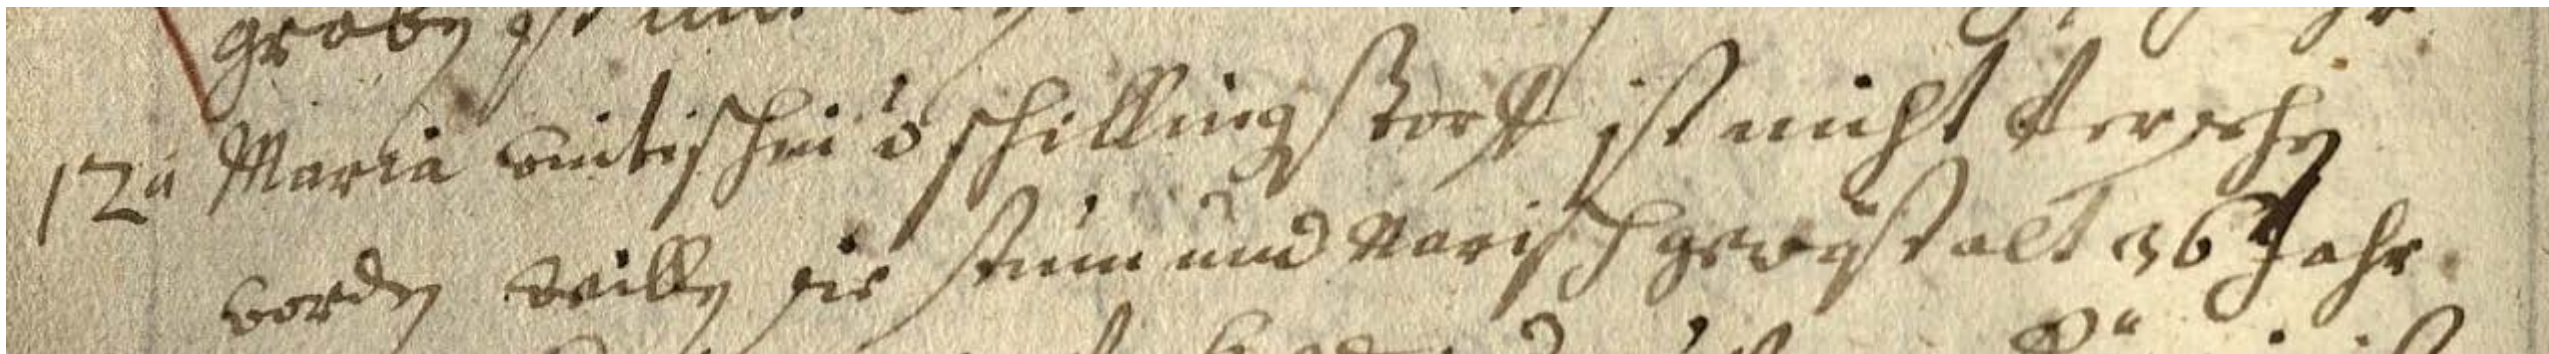 graben ist
12ª Maria wittischin v schillingstorff ist nicht versehn
worden willen sie stum und Narisch gewest alt 36 Jahr